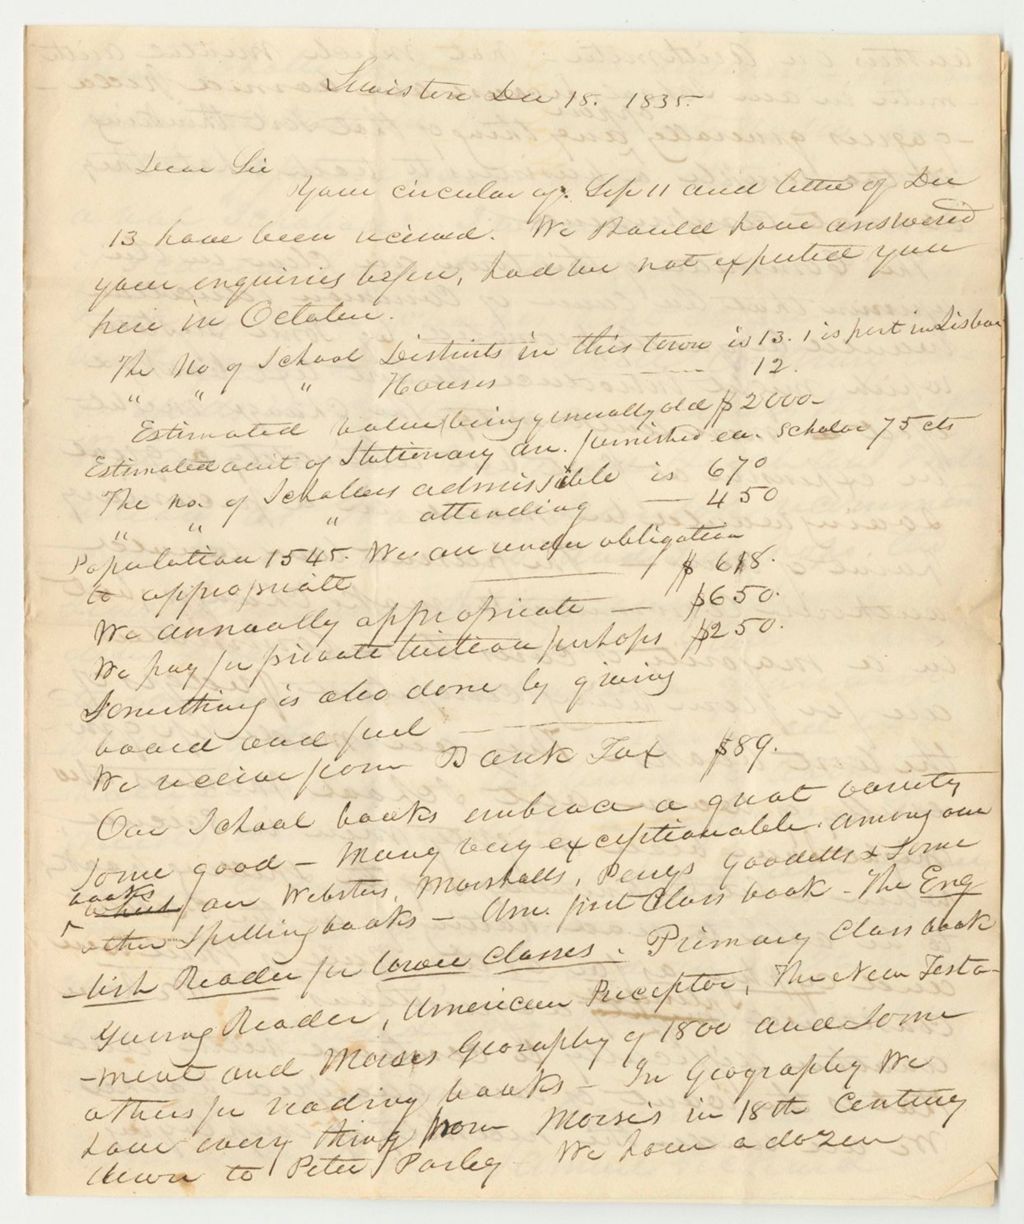 Lewiston Dec 18. 1835.
Dear Sir
Your circular of Sep 11 and letter of Dec
13 have been received. We should have answered
your enquiries before, had we not expected you
here in October.
The No of School Districts in this town is 13. 1 is part in Lisbon
" " " Houses 12.
Estimated value (being generally old $2000-
Estimated amt of Stationary an. furnished ea. scholar 75 cts
The no. of Scholars admissible is 670
" " " attending — 450
Population 1545. We are under obligation
to appropriate — $618.
We annually appropriate — $650.
We pay for private tuition perhaps $250.
Something is also done by giving
board and fuel —
We receive from Bank Tax $89.
Our School books embrace a great variety
some good — Many very exceptionable. Among our
books
are Websters, Marshalls, Perrys Goodells & some
other Spelling books — Am. first Class book - The Eng
-lish Reader for lower classes. Primary Class book
Young Reader, American Preceptor, The New Testa-
-ment and Morses Georaphy of 1800 and some
others for reading books — In Geography We
have every thing from Morse's in 18th Century
down to Peter Parley We have a dozen